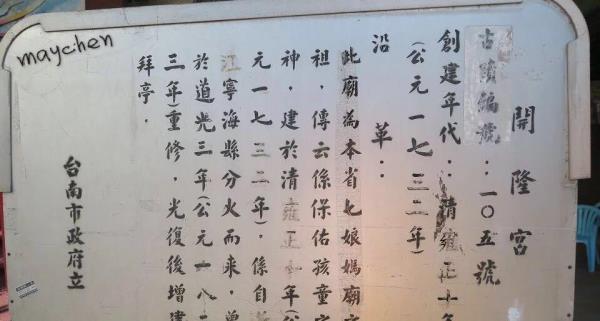 開隆宮
古蹟編號：一〇五號
創建年代：清雍正十年
（公元一七三二年）
沿革：
此廟為本省七娘媽廟
祖，傳云係保佑孩童
神，建於清雍正十年（公
元一七三二年），係自浙
江寧海縣分火而來，曾
於道光三年（公元一八二
三年）重修，光復後增建
拜亭。
台南市政府立
maychen